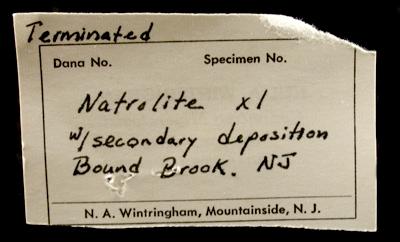 Terminated
Dana No. Specimen No.
Natrolite xl
w/secondary deposition
Bound Brook. NJ
N. A. Wintringham, Mountainside, N. J.